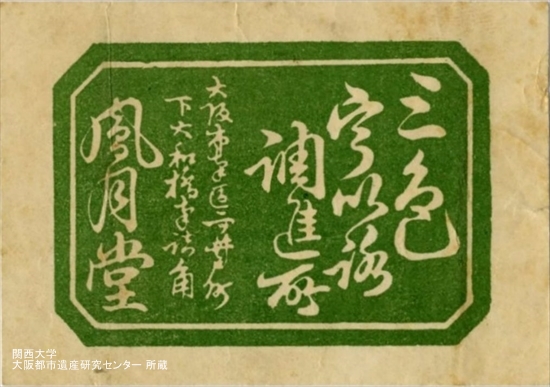 三色
宇以路
調進所
大阪市南區二ツ井戸町
下大和橋東詰角
風月堂
関西大学
大阪都市遺産研究センター 所蔵